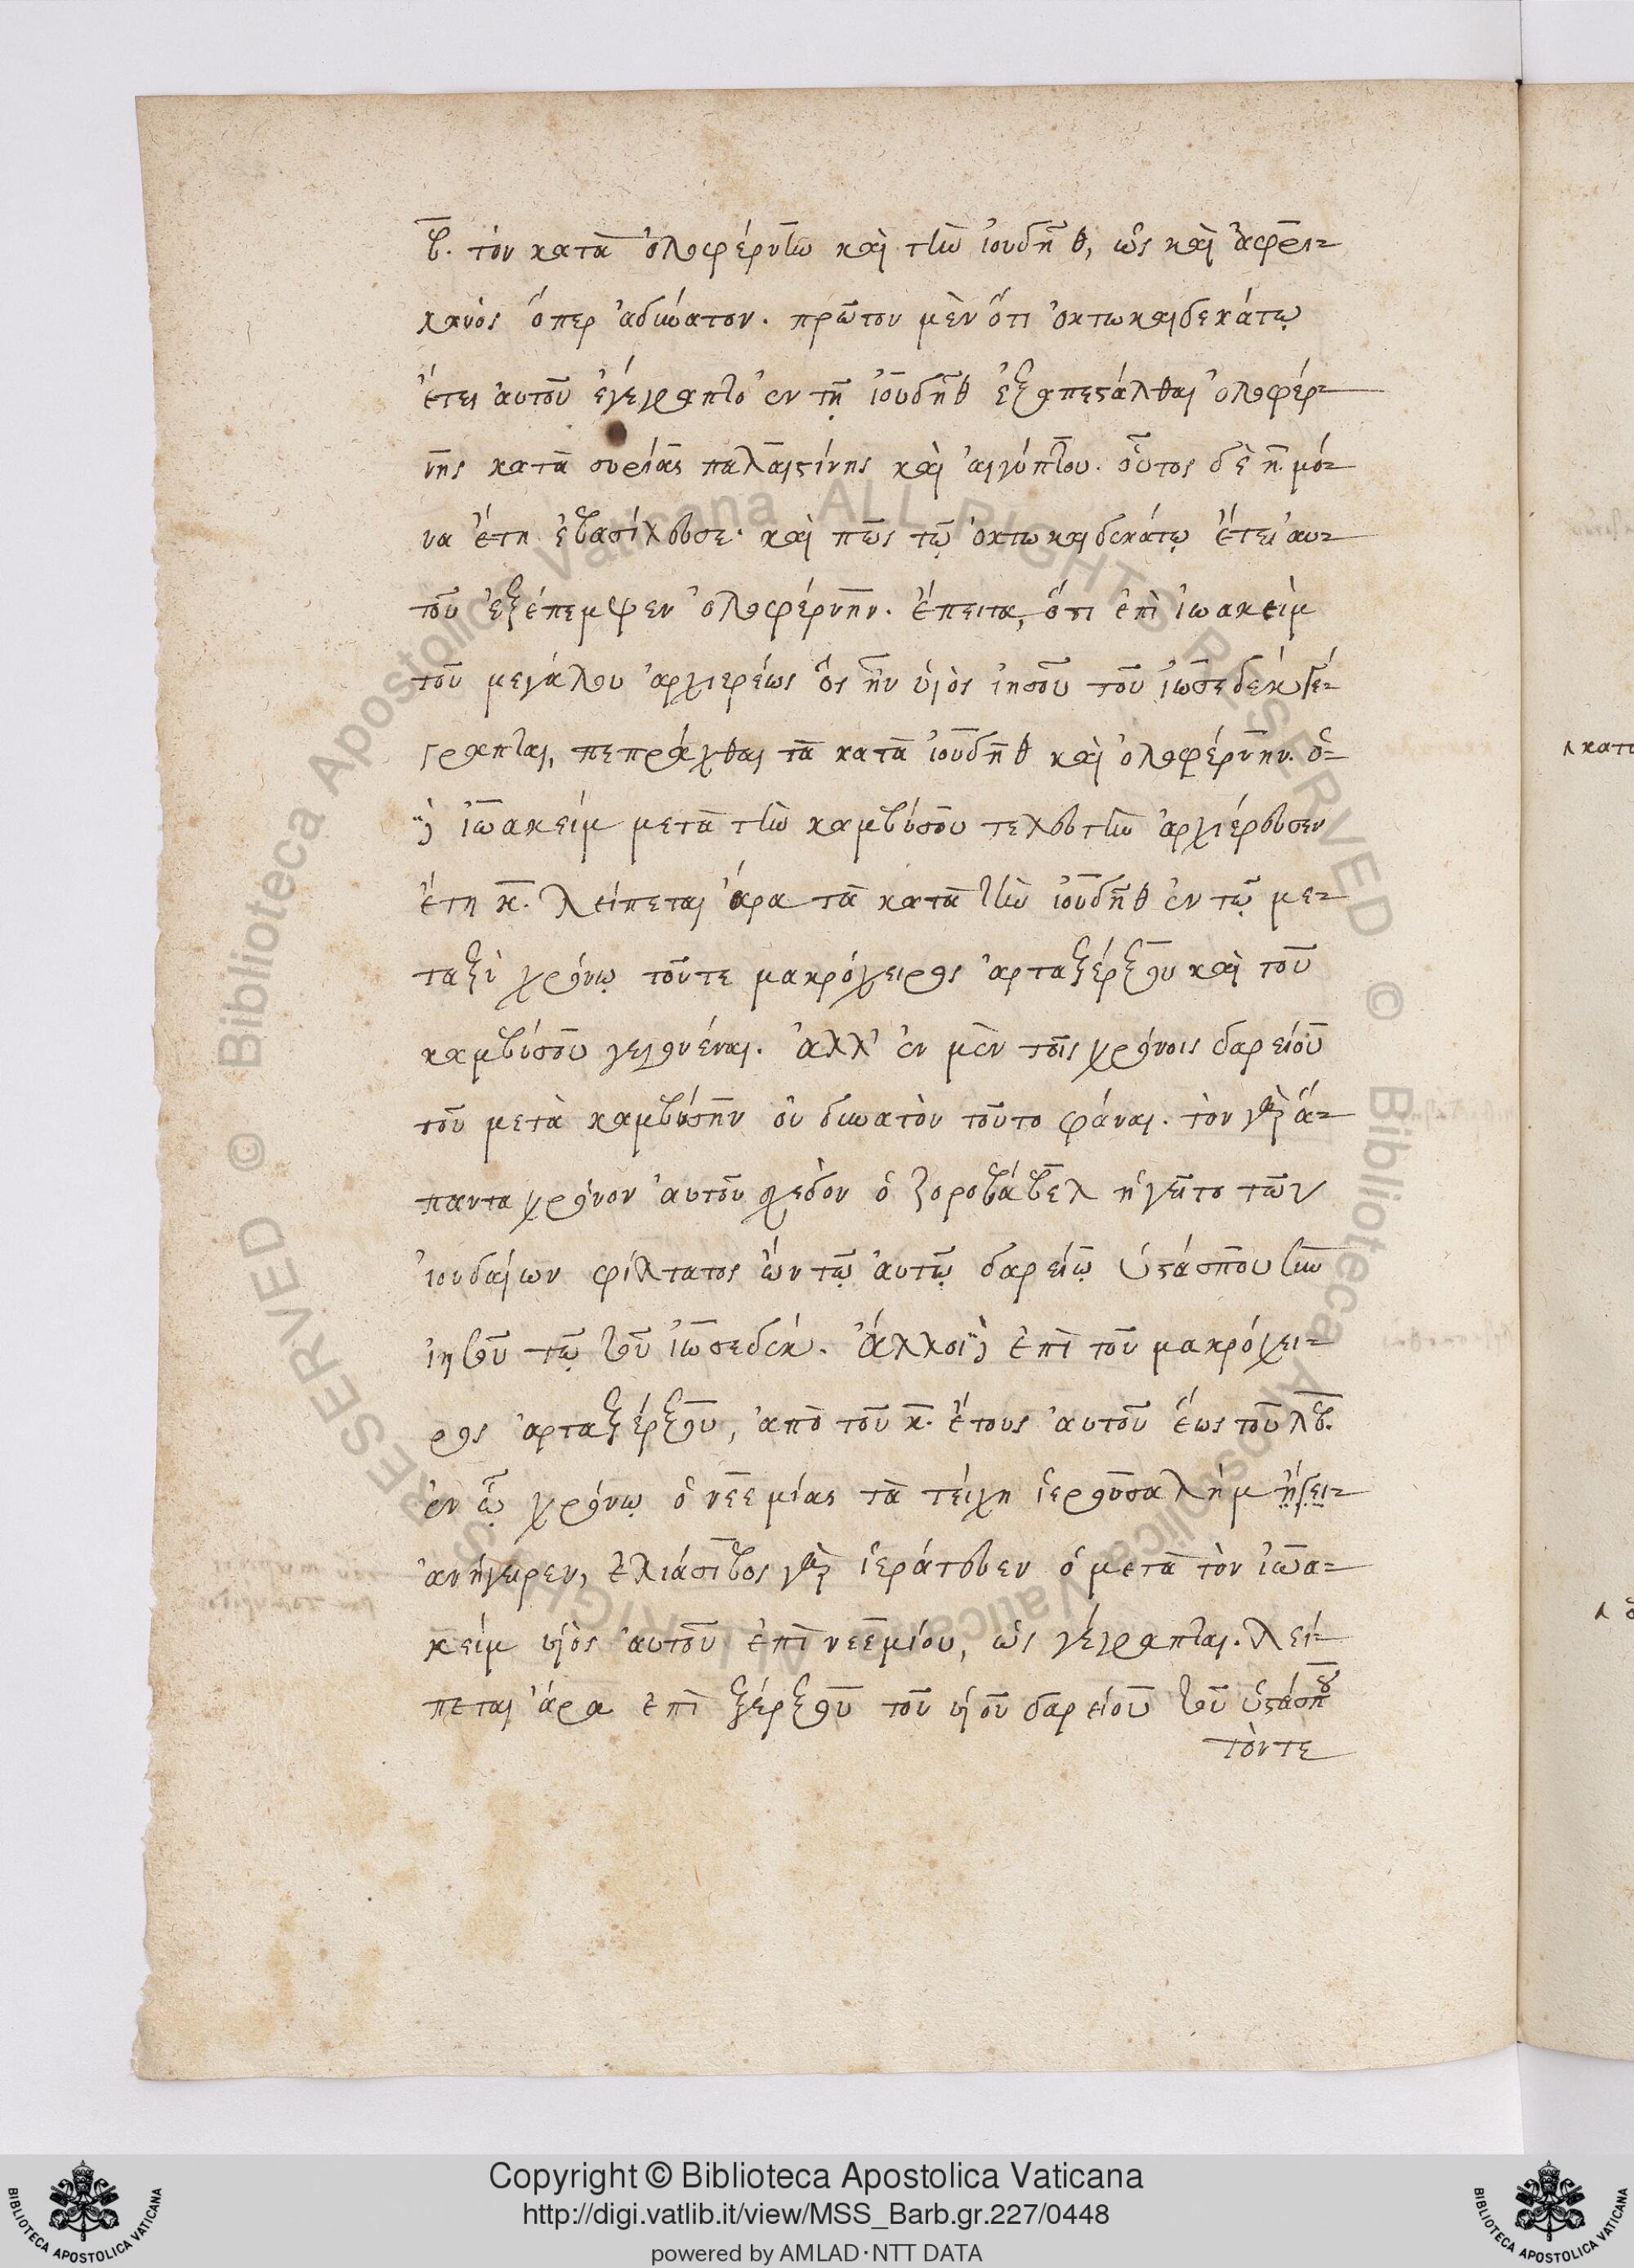 β. τὸν κατὰ ὀλοφέρνην καὶ τὴν ἰουδὴθ, ὡς καὶ ἀφρι-
κανὸς ὅπερ ἀδύνατον. πρῶτον μὲν ὅτι ὀκτωκαιδεκάτῳ
ἔτει αὐτοῦ ἐγέγραπτο ἐν τῇ ἰουδὴθ ἐξαπεστάλθαι ὀλοφέρ-
νης κατὰ συρίας παλαιστίνης καὶ αἰγύπτου. οὗτος δὲ η. μό-
να ἔτη ἐβασίλευσε. καὶ πῶς τῷ ὀκτωκαιδεκάτῳ ἔτει αὐ-
τοῦ ἐξέπεμψεν ὀλοφέρνην. ἔπειτα, ὅτι ἐπὶ ἰωακεὶμ
τοῦ μεγάλου ἀρχιερέως ὃς ἦν υἱὸς ἰησοῦ τοῦ ἰωσεδὲκ γέ-
γραπται, πεπράχθαι τὰ κατὰ ἰουδὴθ καὶ ὀλοφέρνην. ὁ
δὲ ἰωακεὶμ μετὰ τὴν καμβύσου τελευτὴν ἀρχιέρευσεν
ἔτη κ. λείπεται ἄρα τὰ κατὰ τὴν ἰουδὴθ ἐν τῷ με-
ταξὺ χρόνῳ τοῦτε μακρόχειρος ἀρταξέρξου καὶ τοῦ
καμβύσου γεγονέναι. ἀλλ' ἐν μὲν τοῖς χρόνοις δαρείου
τοῦ μετὰ καμβύσην οὐ δυνατὸν τοῦτο φάναι. τὸν γὰρ ἅ-
παντα χρόνον αὐτοῦ σχεδὸν ὁ ζοροβάβελ ἡγεῖτο τῶν
ἰουδαίων φίλτατος ὢν τῷ αὐτῷ δαρείῳ ὑστάσπου σὺν
ἰησοῦ τῷ τοῦ ἰωσεδέκ. ἀλλ' οὐδὲ ἐπὶ τοῦ μακρόχει-
ρος ἀρταξέρξου, ἀπὸ τοῦ κ. ἔτους αὐτοῦ ἕως τοῦ λβ.
ἐν ᾧ χρόνῳ ὁ νεεμίας τὰ τείχη ἱερουσαλὴμ ἤγει-
ἀνήγειρεν, ἐλιάσιβος γὰρ ἱεράτευεν ὁ μετὰ τὸν ἰωα-
κεὶμ υἱὸς αὐτοῦ ἐπὶ νεεμίου, ὡς γέγραπται. λεί-
πεται ἄρα ἐπὶ ξέρξου τοῦ υἱοῦ δαρείου τοῦ ὑστάσπου
τόντε
Copyright © Biblioteca Apostolica Vaticana
http://digi.vatlib.it/view/MSS_Barb.gr.227/0448
powered by AMLAD·NTT DATA